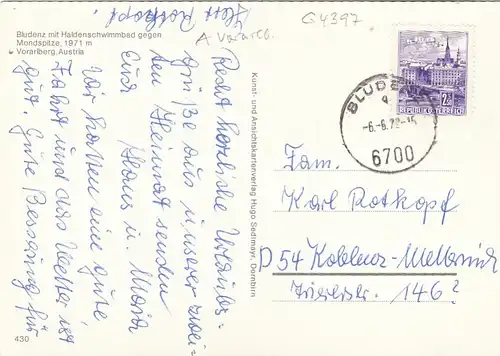 Bludenz mit Haldenschwimmbad gegen
Mondspitze, 1971 m
Vorarlberg, Austria
Recht herzliche Urlaubs-
grüße aus unserer zwei-
ten Heimat senden
Euch Hans u. Maria
Wir hatten eine gute
Fahrt und das Wetter ist
gut. Gute Besserung für
Herr Rotkopf.
G4397
A Vorarlb.
Kunst- und Ansichtskartenverlag Hugo Sedlmayr, Dornbirn
REPUBLIK ÖSTERREICH
BLUDENZ
-6.-8.72-15
6700
Fam.
Karl Rotkopf
D 54 Koblenz-Metternich
Triererstr. 146?
430